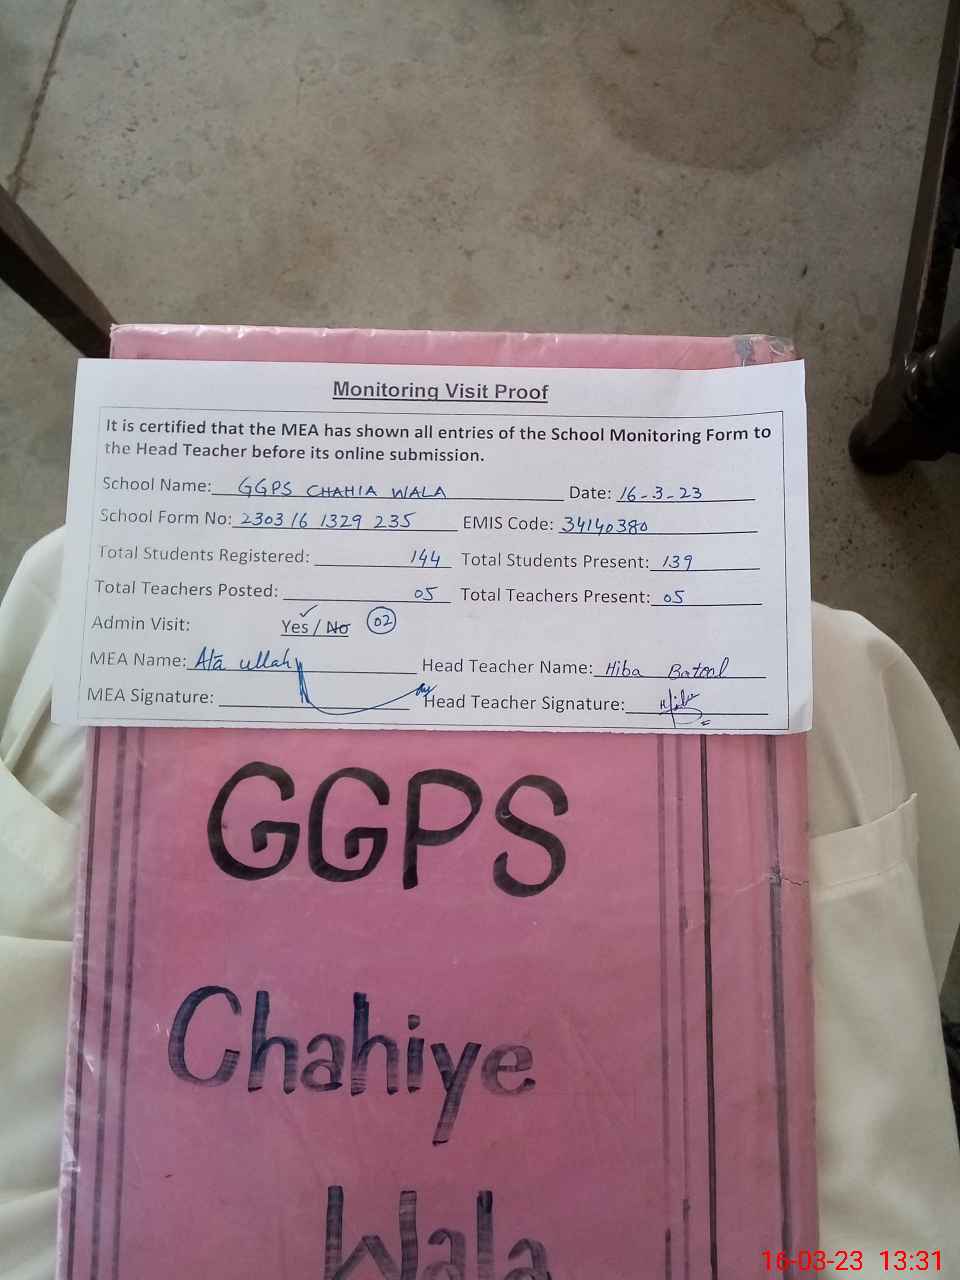 Monitoring Visit Proof
It is certified that the MEA has shown all entries of the School Monitoring Form to
the Head Teacher before its online submission.
School Name: GGPS CHAHIA WALA Date: 16-3-23
School Form No: 230316 1329 235 EMIS Code: 34140380
Total Students Registered: 144 Total Students Present: 139
Total Teachers Posted: 05 Total Teachers Present: 05
Admin Visit: Yes / No 02
MEA Name: Ata ullah Head Teacher Name: Hiba Batool
MEA Signature: Head Teacher Signature: Hiba
GGPS
Chahiye
Wala
16-03-23 13:31